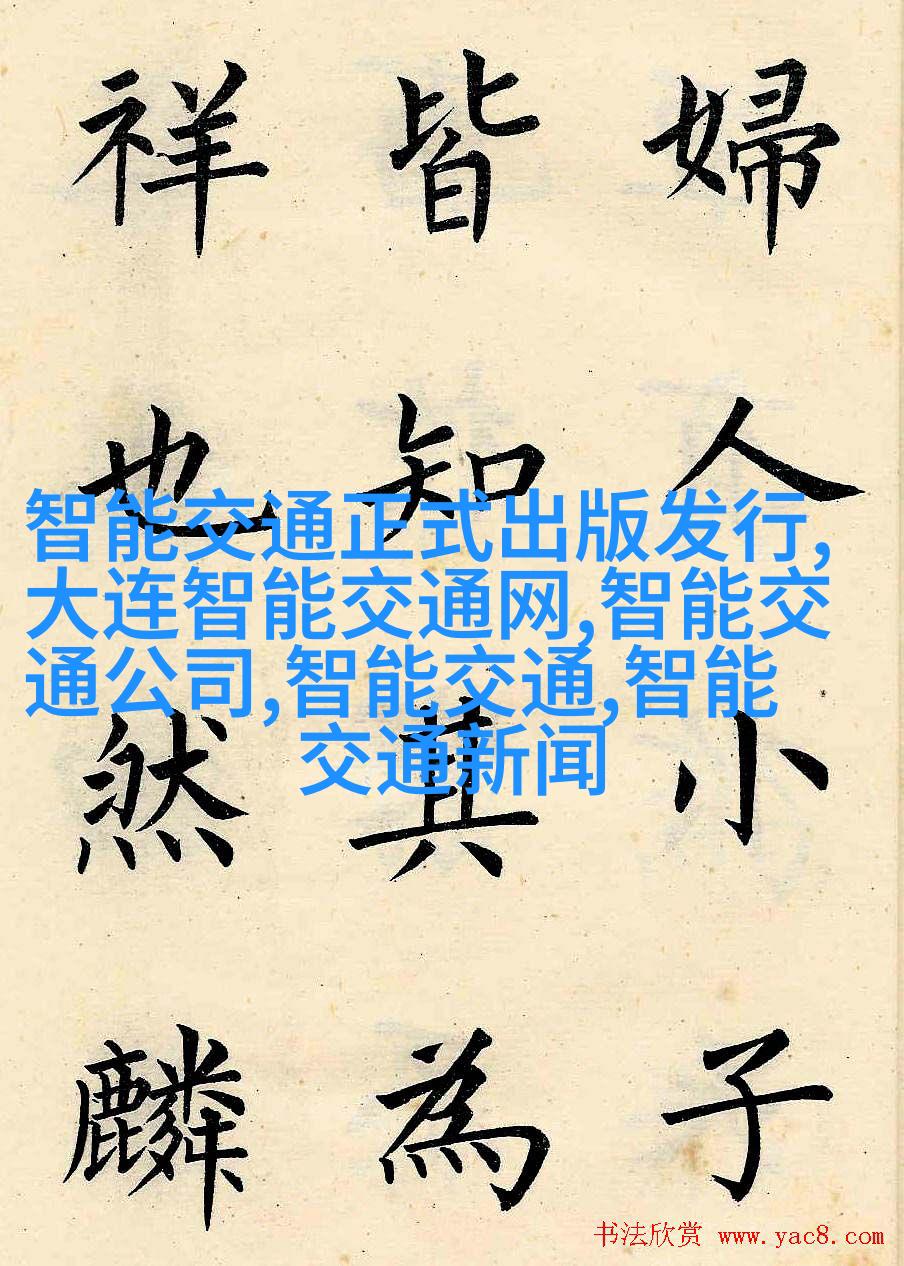 婦人小子
皆知其為
祥也然麟
智能交通正式出版发行,
大连智能交通网,智能交
通公司,智能交通,智能
交通新闻
书法欣赏 www.yac8.com